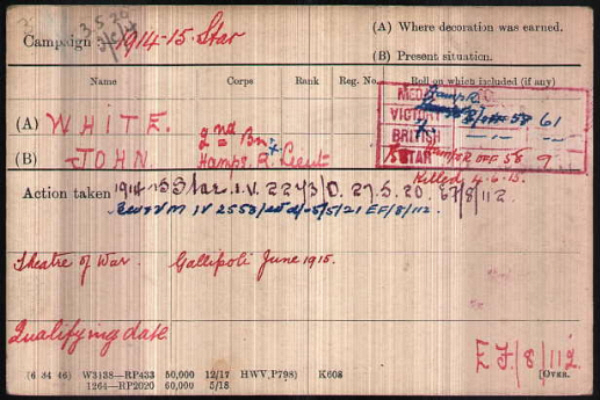 Campaign :—1914-15. Star
(A) Where decoration was earned.
(B) Present situation.
Name Corps Rank Reg. No. Roll on which included (if any)
(A) WHITE. 2nd Bn
(B) JOHN. Hamps. R. Lieut
MEDAL Hamp R.
VICTORY B/OFF 58 61
BRITISH — " — — " —
15 STAR Hamps R OFF 58 9
Killed 4.6.15.
Action taken 1914-15 Star. I.V. 2243/D. 27.5.20. EF/8/112.
BW & VM IV 2553/ 5/5/21 EF/8/112.
Theatre of War. Gallipoli June 1915.
Qualifying date
EF/8/112.
(6 34 46) W3138—RP433 50,000 12/17 HWV(P798) K608
1264—RP2020 60,000 5/18
[OVER.